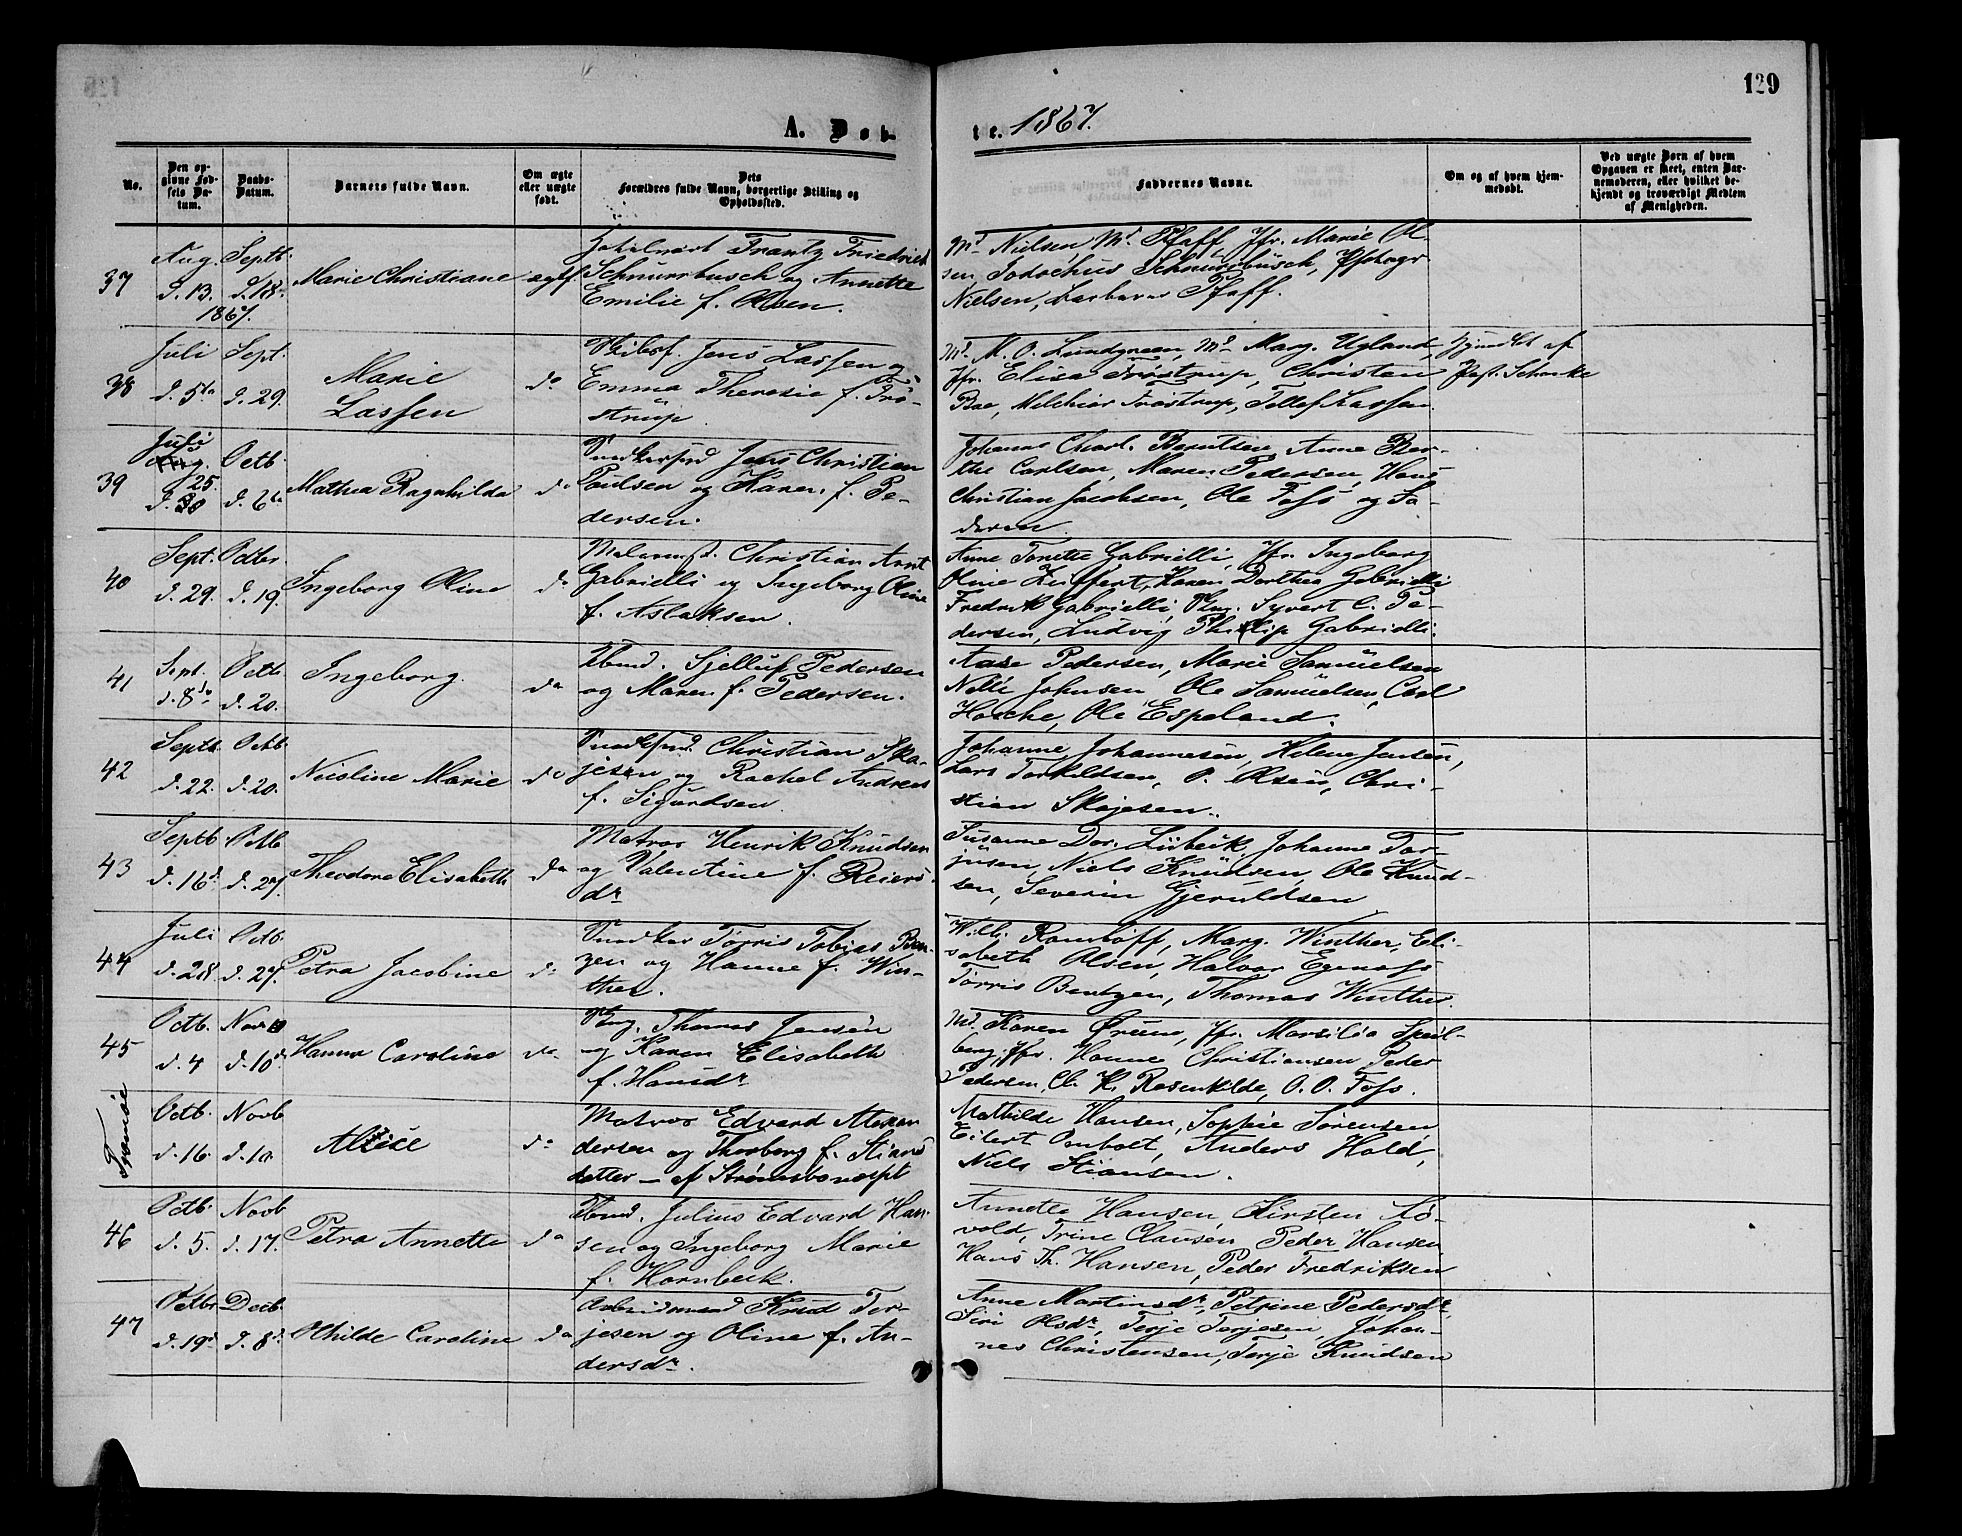 129
A. Døb-
te. 1867.
No.
Den opgivne Fødsels Datum.
Daabs-Datum.
Barnets fulde Navn.
Om ægte eller uægte født.
Dets Forældres fulde Navn, borgerlige Stilling og Opholdssted.
Faddernes Navne.
Om og af hvem hjemmedøbt.
Ved uægte Børn af hvem Opgaven er skeet, enten Barnemoderen, eller hvilket bekjendt og troværdigt Medlem af Menigheden.
37 Aug. d. 13. Septb. d. 18. 1867. Marie Christiane ægte
Frantz Friedrich
Schnurrbusch og Annette
Emilie f. Olsen.
Md. Nielsen, Md. Pfaff, Jfr. Marie Ol-
sen, Schnurrbusch,
Nielsen, Pfaff.
38 Juli d. 5te Sept. d. 29. Marie Lassen do
Jens Lassen og
Emma Theresie f. Trö-
strup.
Md. M. O. Lundgreen, Md. Marg. Ugland,
Jfr. Elisa Tröstrup, Christen
Boe, Melchior Tröstrup, Tellef Lassen.
af
Past. Schanke
39 Juli 25. Octb. d. 6te Mathea Ragnhilda do
Jens Christian
Poulsen og Karen f. Pe-
dersen.
Johanne Charl. Berntsen, Anne Ber-
the Carlsen, Maren Pedersen, Hans
Christian Jacobsen, Ole Foss og Fa-
deren
40 Sept. d. 29. Octbr d. 19. Ingeborg Oline do
Christian Arnt
Gabrielli og Ingeborg Oline
f. Aslaksen.
Anne Tonette Gabrielli, Jfr. Ingeborg
Oline Zeiffert, Karen Dorthea Gabrielli
Fredrik Gabrielli, Syvert C. Pe-
dersen, Ludvig Philip Gabrielli.
41 Sept. d. 8de Octb. d. 20. Ingeborg. do
Sjelluf Pedersen
og Maren f. Pedersen.
Aase Pedersen, Marie Samuelsen
Nelli Johnsen Ole Samuelsen, Carl
Hasche, Ole Espeland.
42 Septb. d. 22. Octb. d. 20. Nicoline Marie do
Christian Ska-
jesen og Rachel Andrea
f. Sigurdsen.
Johanne Johannesen, Helene Jensen,
Lars Torkildsen, O. Olsen, Chri-
stian Skajesen.
43 Septb d. 16d. Octb d. 27. Theodore Elisabeth do
Matros Henrik Knudsen
og Valentine f. Reiers-
dr.
Susanne Dor. Lübeck, Johanne Tor-
jusen, Niels Knudsen, Ole Knud-
sen, Severin Gjeruldsen
44 Juli d. 28. Octb. d. 27. Petra Jacobine do
Snedker Torris Tobias Ben-
zen og Hanne f. Win-
ther.
Romhoff, Marg. Winther, Eli-
sabeth Olsen, Halvor Egenæss
Torris Bentzen, Thomas Winther.
45 Octb. d. 4 Novb d. 10d. Hanna Caroline do
Thomas Jensen
og Karen Elisabeth
f. Hansdr.
Md. Karen Ørum, Jfr. Marsilia Speil-
berg, Jfr. Hanne Christiansen, Peder
Pedersen, Rosenkilde, O. O. Foss.
Tromøe
Octb. d. 16. Novb d. 10. Alice do
Matros Edvard Alexan-
dersen og Thorborg f. Stians
datter — af Strømsbonæspt
Mathilde Hansen, Sophie Sørensen
Eilert Ombolt, Anders Hald,
Niels Stiansen.
46 Octb. d. 5. Novb d. 17. Petra Annette do
Julius Edvard Han-
sen og Ingeborg Marie
f. Hornbeck.
Annette Hansen, Kirsten Lö-
vold, Trine Clausen, Peder Hansen
Hans Th. Hansen, Peder Fredriksen
47 Octbr d. 19d. Decb. d. 8d. Othilde Caroline do
Arbeidsmand Knud Ter-
jesen og Oline f. An-
dersdr.
Anne Martinsdr, Petrine Pedersdr,
Siri Olsdr, Terje Terjesen, Johan-
nes Christensen, Terje Knudsen